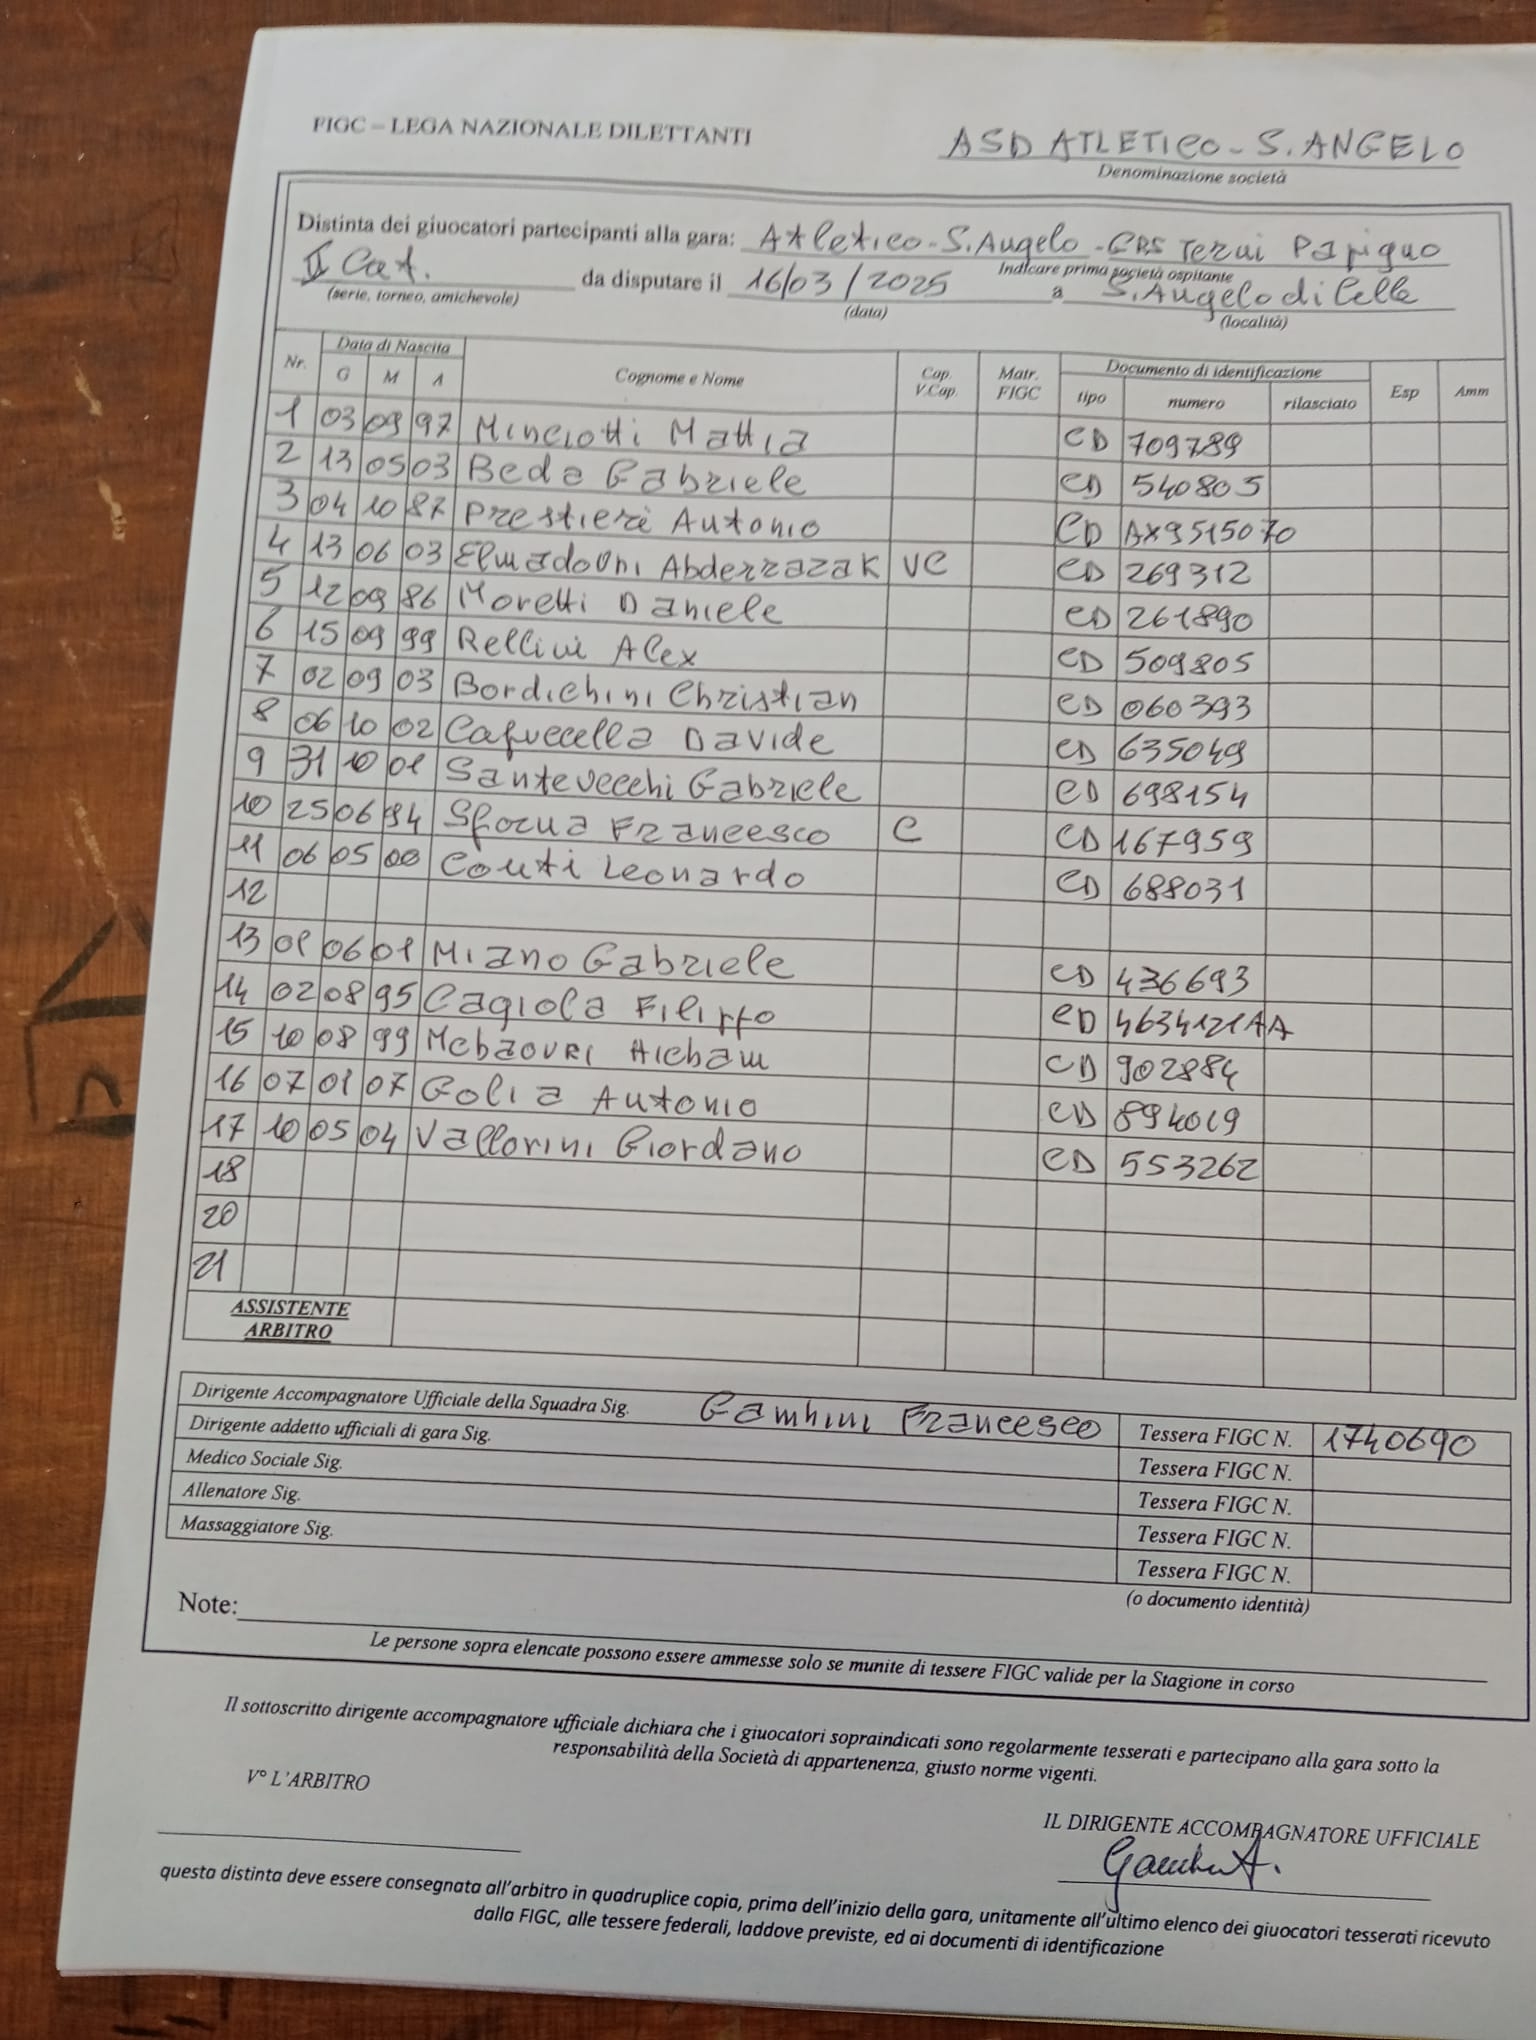 FIGC – LEGA NAZIONALE DILETTANTI
ASD ATLETICO - S. ANGELO
Denominazione società
Distinta dei giuocatori partecipanti alla gara: Atletico - S. Angelo - CRS Terni Papigno
Indicare prima società ospitante
II Cat. da disputare il 16/03/2025 a S. Angelo di Celle
(serie, torneo, amichevole) (data) (località)
Nr. Data di Nascita Cognome e Nome Cap. V.Cap. Matr. FIGC Documento di identificazione Esp Amm
G M A tipo numero rilasciato
1 03 09 97 Minciotti Mattia CD 709789
2 13 05 03 Beda Gabriele CD 540805
3 04 10 87 Prestieri Antonio CD AX9515070
4 13 06 03 Elmadouni Abderrazak VC CD 269312
5 12 09 86 Moretti Daniele CD 261890
6 15 09 99 Rellini Alex CD 509805
7 02 09 03 Bordichini Christian CD 060393
8 06 10 02 Cafuecella Davide CD 635049
9 31 10 01 Santevecchi Gabriele CD 698154
10 25 06 94 Sforna Francesco C CD 167959
11 06 05 00 Conti Leonardo CD 688031
12
13 01 06 01 Miano Gabriele CD 436693
14 02 08 95 Cagiola Filippo CD 4634121AA
15 10 08 99 Mebzouri Hicham CD 902884
16 07 01 07 Golia Antonio CD 894019
17 10 05 04 Vallorini Giordano CD 553262
18
20
21
ASSISTENTE
ARBITRO
Dirigente Accompagnatore Ufficiale della Squadra Sig. Gambini Francesco Tessera FIGC N. 1740690
Dirigente addetto ufficiali di gara Sig. Tessera FIGC N.
Medico Sociale Sig. Tessera FIGC N.
Allenatore Sig. Tessera FIGC N.
Massaggiatore Sig. Tessera FIGC N.
(o documento identità)
Note:
Le persone sopra elencate possono essere ammesse solo se munite di tessere FIGC valide per la Stagione in corso
Il sottoscritto dirigente accompagnatore ufficiale dichiara che i giuocatori sopraindicati sono regolarmente tesserati e partecipano alla gara sotto la
responsabilità della Società di appartenenza, giusto norme vigenti.
V° L'ARBITRO
IL DIRIGENTE ACCOMPAGNATORE UFFICIALE
questa distinta deve essere consegnata all'arbitro in quadruplice copia, prima dell'inizio della gara, unitamente all'ultimo elenco dei giuocatori tesserati ricevuto
dalla FIGC, alle tessere federali, laddove previste, ed ai documenti di identificazione